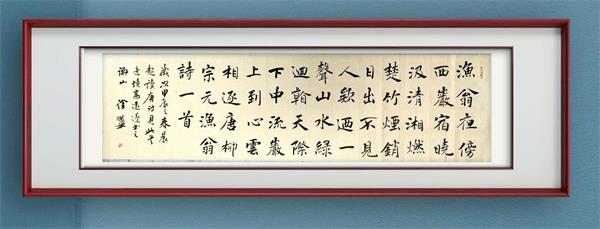 漁翁夜傍
西巖宿曉
汲清湘燃
楚竹煙銷
日出不見
人欸迺一
聲山水綠
迴翰天際
下中流巖
上到心雲
相逐唐柳
宗元漁翁
詩一首
歲次甲辰之春晨
起讀唐詩見此
意境高遠遂書之
山 徐